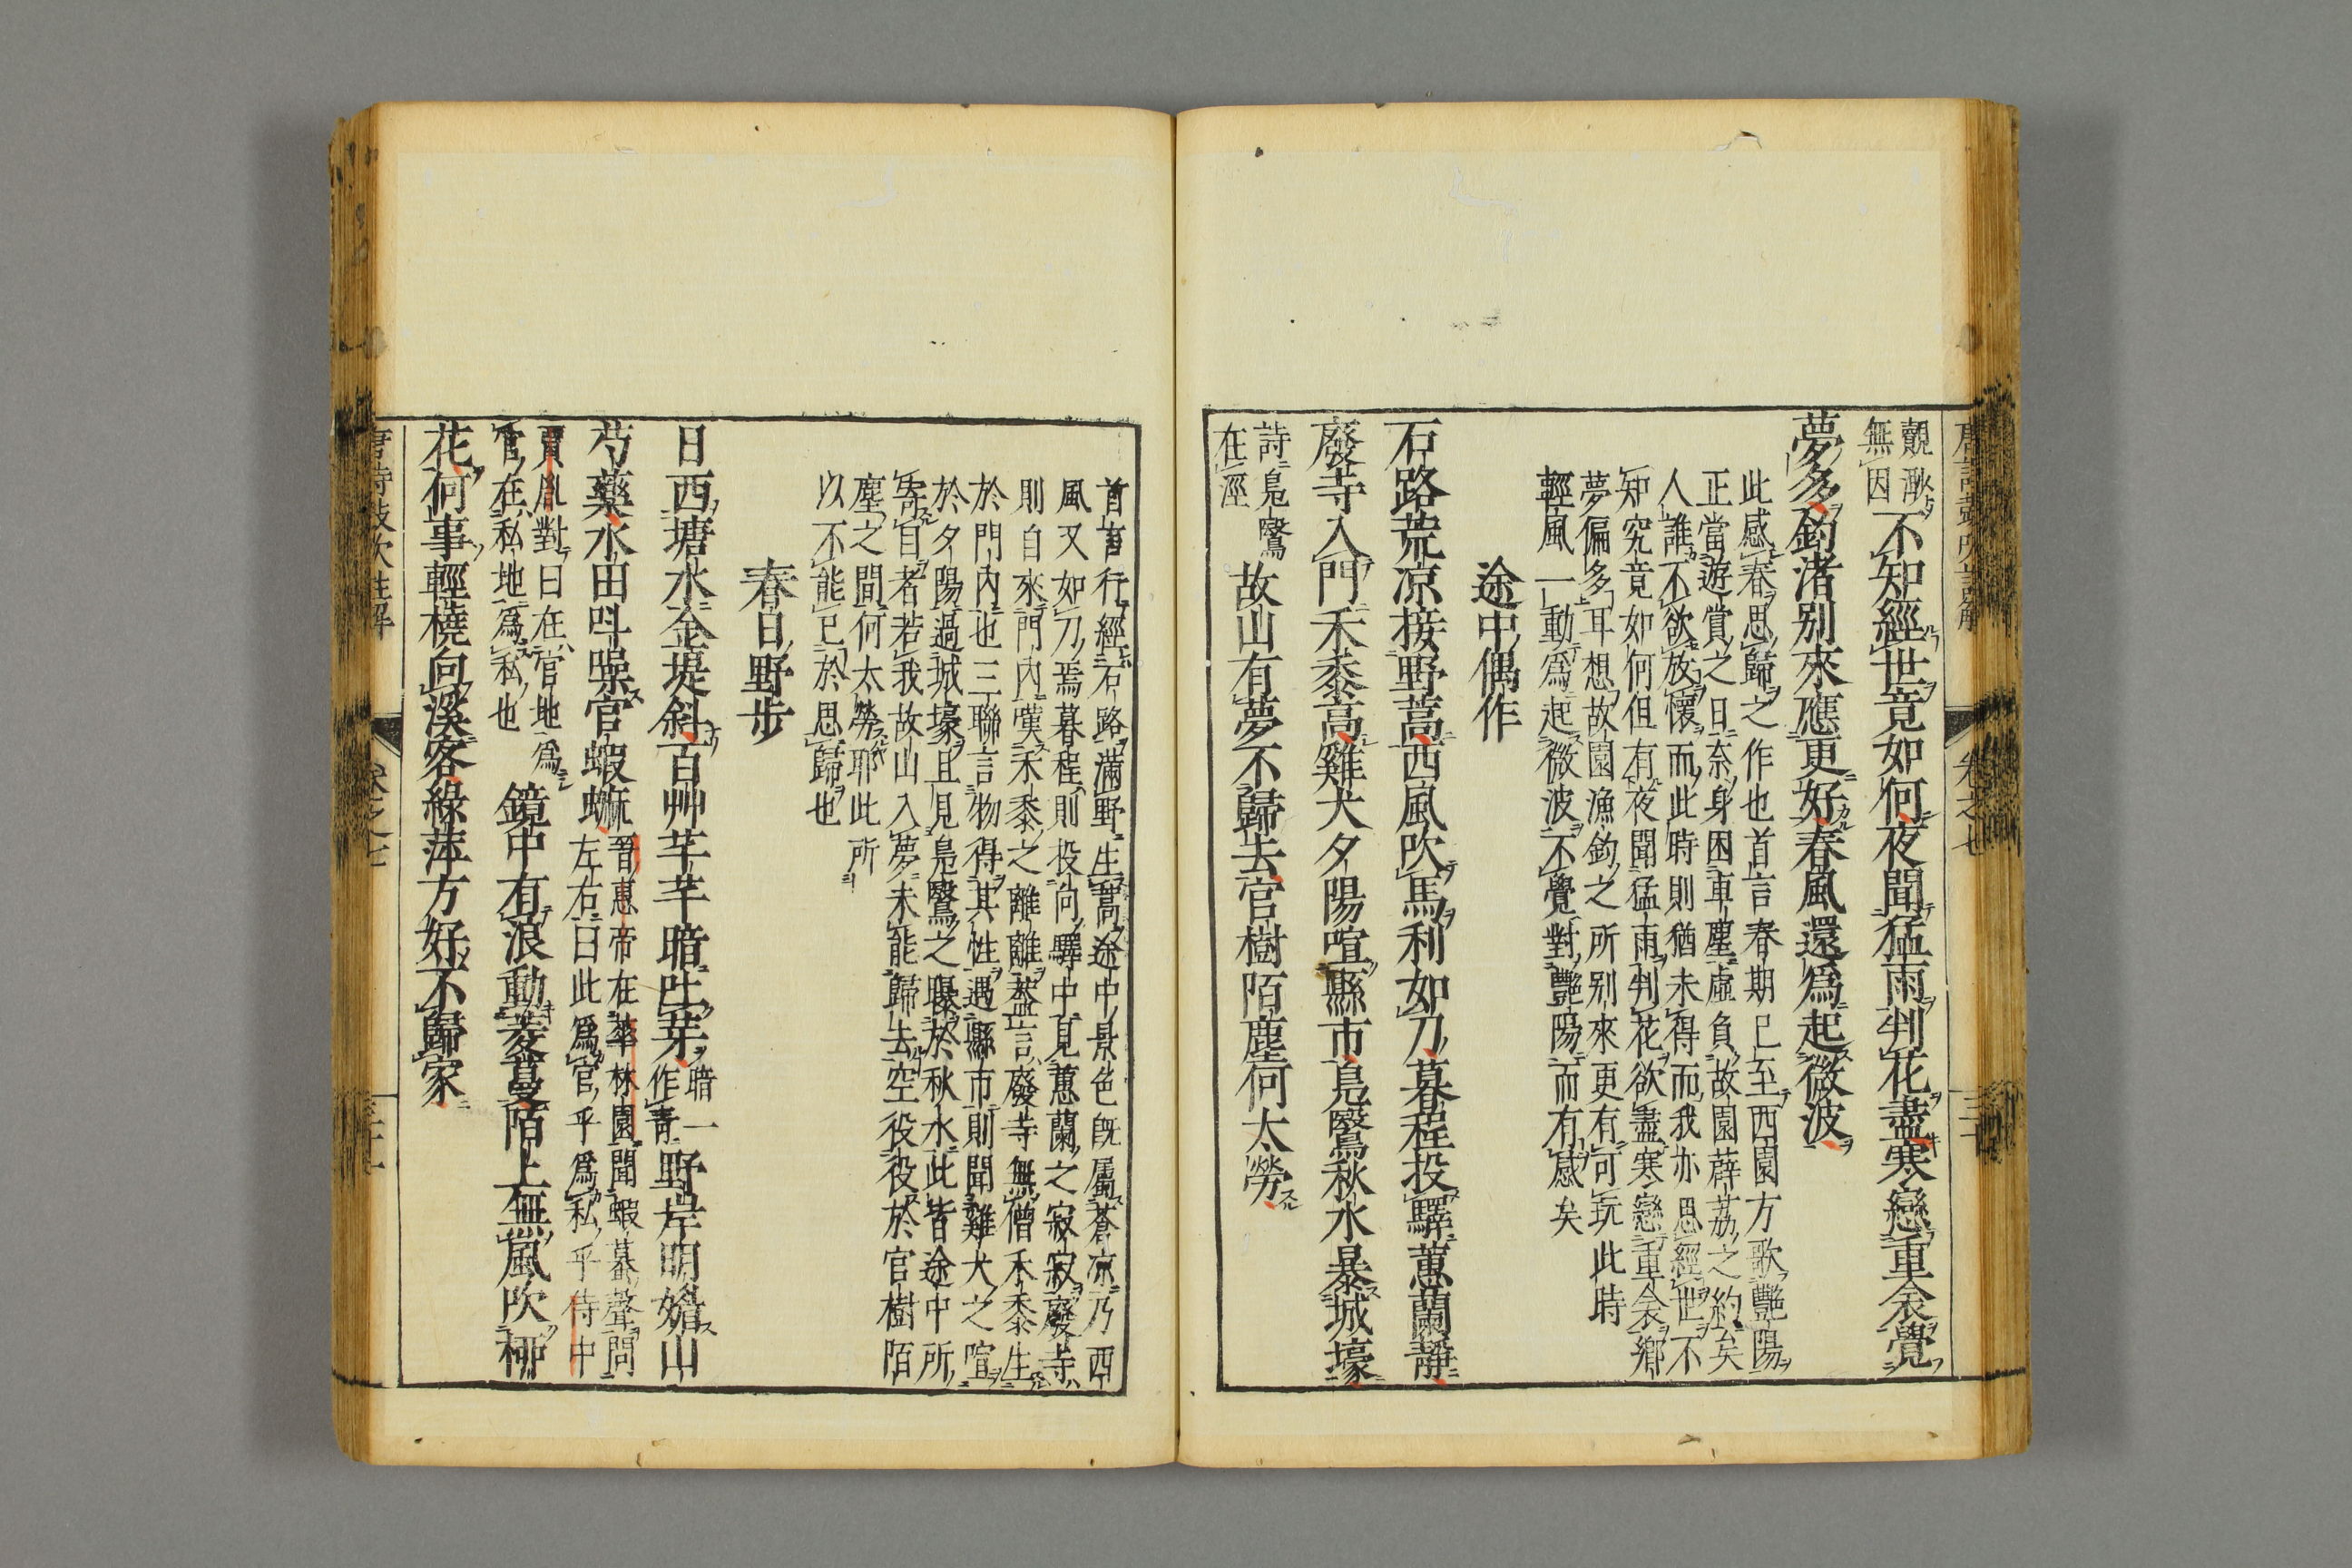 唐詩鼓吹註解 卷之七 三十
覿漱 無因 不知經世竟如何夜聞猛雨判花盡寒戀重衾覺
夢多釣渚別來應更好春風還爲起微波
此感春思歸之作也首言春期已至西園方歌艷陽
正當遊賞之日奈身困車塵虛負故園薜荔之約矣
人誰不欲放懷而此時則猶未得而我亦思經世不
知究竟如何但有夜聞猛雨判花欲盡寒戀重衾鄉
夢偏多耳想故園漁釣之所別來更有可玩此時
輕風一動爲起微波不覺對艷陽而有感矣
途中偶作
石路荒凉接野蒿西風吹馬利如刀暮程投驛蕙蘭靜
廢寺入門禾黍高雞犬夕陽喧縣市鳧鷖秋水暴城壕
詩鳧鷖 在涇 故山有夢不歸去官樹陌塵何太勞
首言行經石路滿野生蒿途中景色旣屬蒼凉乃西
風又如刀焉暮程則投向驛中見蕙蘭之寂寂廢寺
則自來門內嘆禾黍之離離蓋言廢寺無僧禾黍生
於門內也三聯言物得其性過縣市則聞雞犬之喧
於夕陽過城壕且見鳧鷖之曝於秋水此皆途中所
寄目者若我故山入夢未能歸去空役役於官樹陌
塵之間何太勞耶此所
以不能已於思歸也
春日野步
日西塘水金堤斜百艸芊芊暗吐芽 暗一 作靑 野岸明媚山
芍藥水田呌噪官蝦蟆 晋惠帝在華林園聞蝦蟇聲問 左右曰此爲官乎爲私乎侍中
賈胤對曰在官地爲 官在私地爲私也 鏡中有浪動菱蔓陌上無風吹柳
花何事輕橈向溪客綠萍方好不歸家
唐詩鼓吹註解 卷之七 三十一